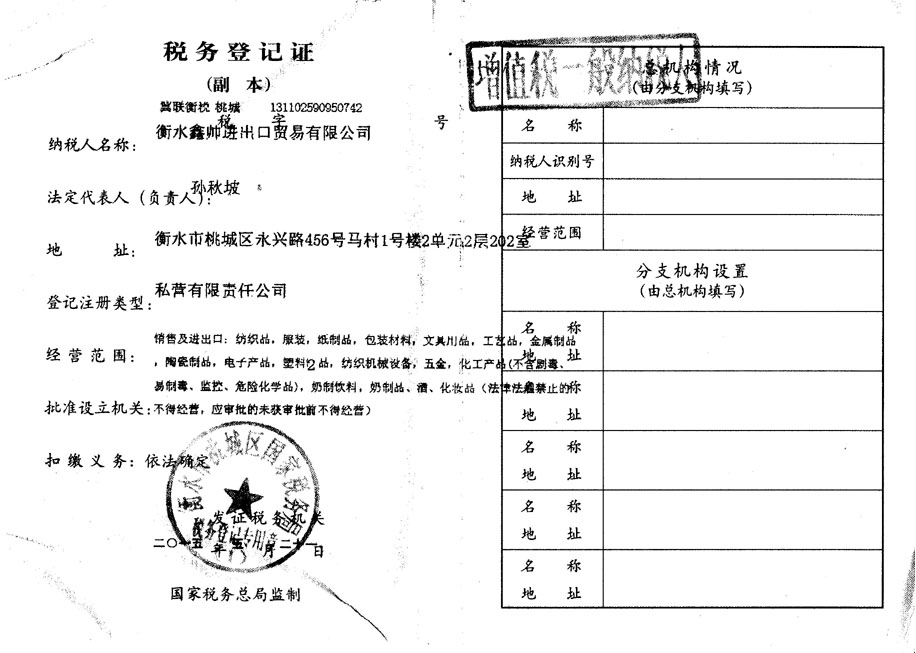 税务登记证
(副 本)
冀联衡税 桃城 131102590950742
税 字 号
纳税人名称: 衡水鑫帅进出口贸易有限公司
法定代表人(负责人): 孙秋坡
地 址: 衡水市桃城区永兴路456号马村1号楼2单元2层202室
登记注册类型: 私营有限责任公司
经营范围: 销售及进出口: 纺织品, 服装, 纸制品, 包装材料, 文具用品, 工艺品, 金属制品
, 陶瓷制品, 电子产品, 塑料 品, 纺织机械设备, 五金, 化工产品(不含剧毒、
易制毒、监控、危险化学品), 奶制饮料, 奶制品、酒、化妆品(法律法规禁止的
不得经营, 应审批的未获审批前不得经营)
批准设立机关:
扣缴义务: 依法确定
衡水市桃城区国家税务局
税务登记专用章
发证税务机关
二〇一五年 月二十一日
国家税务总局监制
增值税一般纳税人
总机构情况
(由分支机构填写)
名 称
纳税人识别号
地 址
经营范围
分支机构设置
(由总机构填写)
名 称
地 址
名 称
地 址
名 称
地 址
名 称
地 址
名 称
地 址